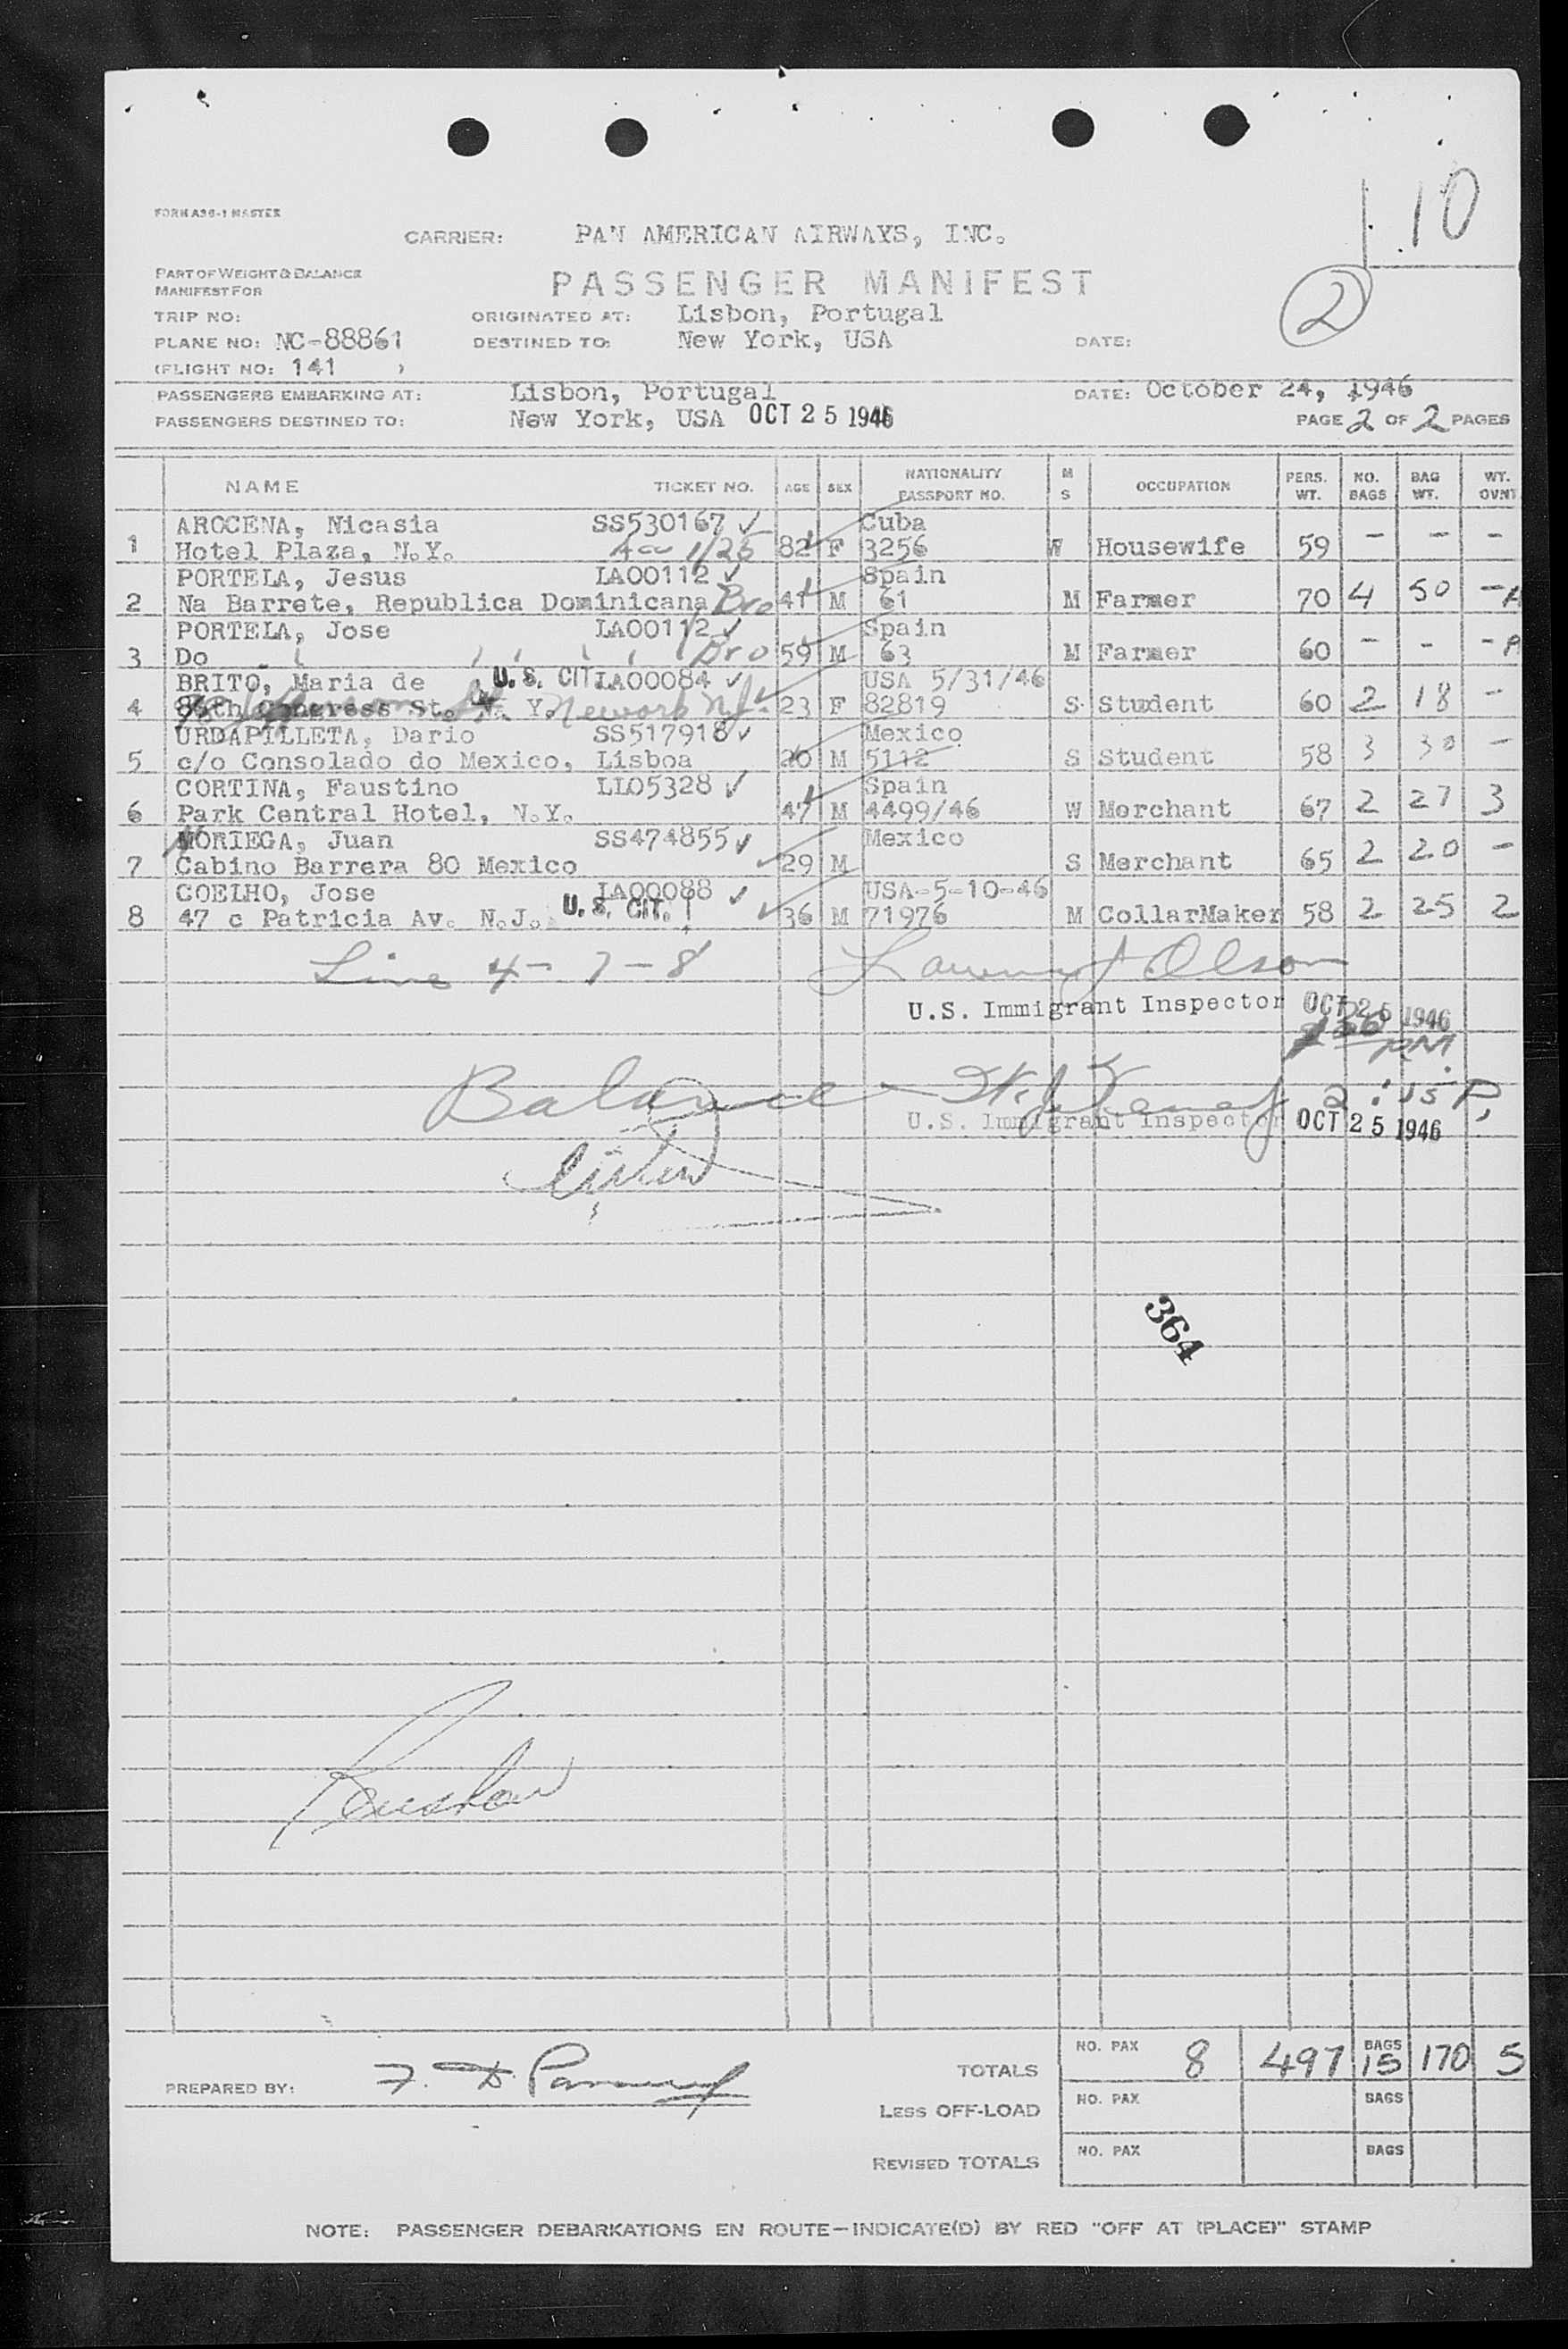 10
FORM A36-1 MASTER
CARRIER: PAN AMERICAN AIRWAYS, INC.
PART OF WEIGHT & BALANCE
MANIFEST FOR
PASSENGER MANIFEST
2
TRIP NO: ORIGINATED AT: Lisbon, Portugal
PLANE NO: NC-88861 DESTINED TO: New York, USA DATE:
(FLIGHT NO: 141 )
PASSENGERS EMBARKING AT: Lisbon, Portugal DATE: October 24, 1946
PASSENGERS DESTINED TO: New York, USA OCT 25 1946 PAGE 2 OF 2 PAGES
NAME TICKET NO. AGE SEX NATIONALITY PASSPORT NO. M S OCCUPATION PERS. WT. NO. BAGS BAG WT. WT. OVWT
AROCENA, Nicasia SS530167 ✓ Cuba
1 Hotel Plaza, N.Y. 1/25 82 F 3256 W Housewife 59 - - -
PORTELA, Jesus LA00112 ✓ Spain
2 Na Barrete, Republica Dominicana Bro 41 M 61 M Farmer 70 4 50 -
PORTELA, Jose LA00112 ✓ Spain
3 Do Bro 59 M 63 M Farmer 60 - - -
BRITO, Maria de U.S. CIT. LA00084 ✓ USA 5/31/46
4 Congress St. N. Y. Newark NJ. 23 F 82819 S Student 60 2 18 -
URDAPILLETA, Dario SS517918 ✓ Mexico
5 c/o Consolado do Mexico, Lisboa 20 M 5112 S Student 58 3 30 -
CORTINA, Faustino LL05328 ✓ Spain
6 Park Central Hotel, N.Y. 47 M 4499/46 W Merchant 67 2 27 3
NORIEGA, Juan SS474855 ✓ Mexico
7 Cabino Barrera 80 Mexico 29 M S Merchant 65 2 20 -
COELHO, Jose LA00088 ✓ USA-5-10-46
8 47 c Patricia Av. N.J. U.S. CIT. 36 M 71976 M CollarMaker 58 2 25 2
Line 4- 7-8 Olson
U.S. Immigrant Inspector OCT 25 1946
PM
Balance 2:15 P.
U.S. Immigrant Inspector OCT 25 1946
364
PREPARED BY:
TOTALS NO. PAX 8 497 BAGS 15 170 5
LESS OFF-LOAD NO. PAX BAGS
REVISED TOTALS NO. PAX BAGS
NOTE: PASSENGER DEBARKATIONS EN ROUTE—INDICATE(D) BY RED "OFF AT (PLACE)" STAMP